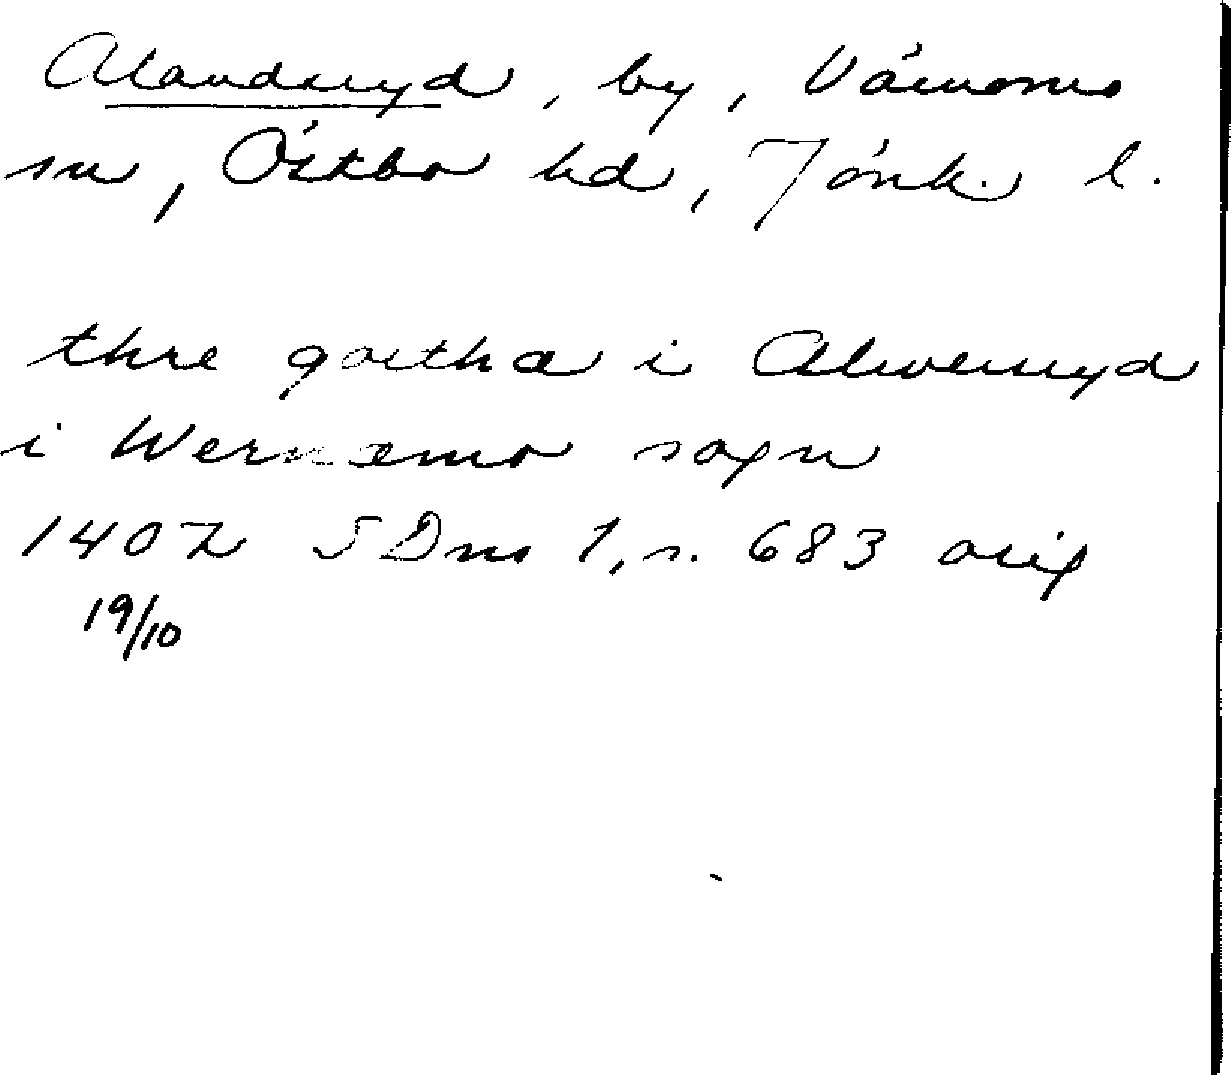 Alandsryd, by, Värnamo
sn, Östbo hd, Jönk. l.
thre gortha i Alwersryd
i Wernæmo sogn
1402 SDns 1, s. 683 orig
19/10